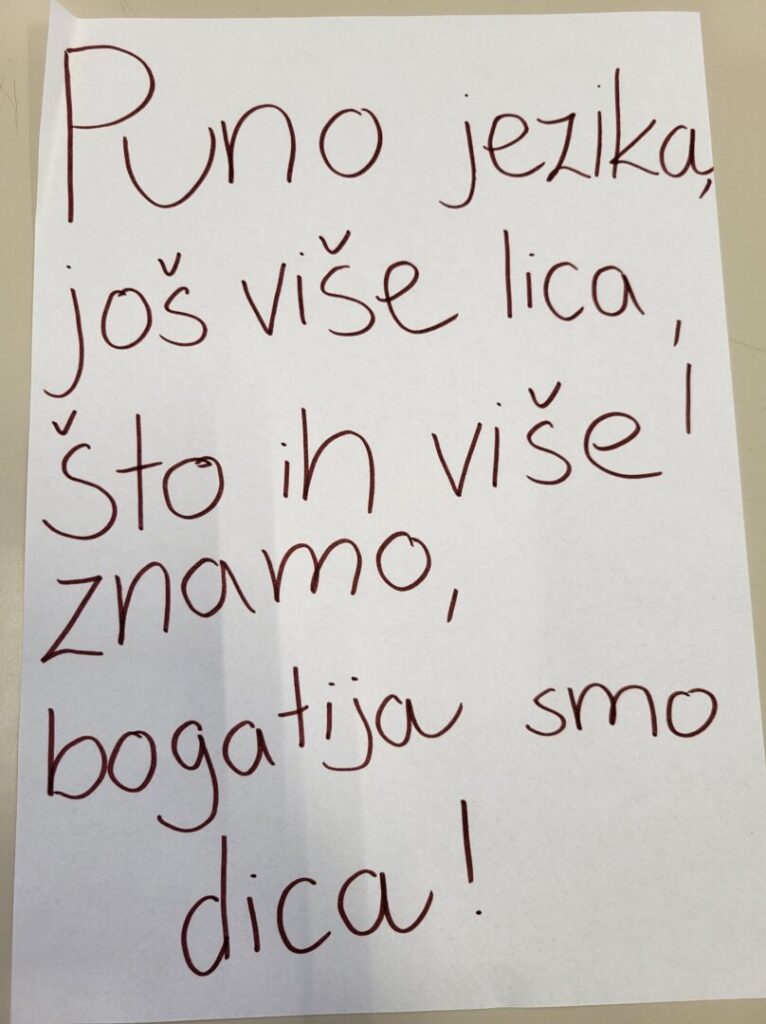 Puno jezika,
još više lica,
što ih više
znamo,
bogatija smo
dica!